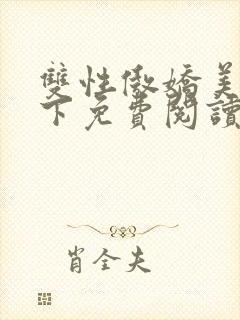 雙性傲嬌美
下免費閱讀
肖全夫